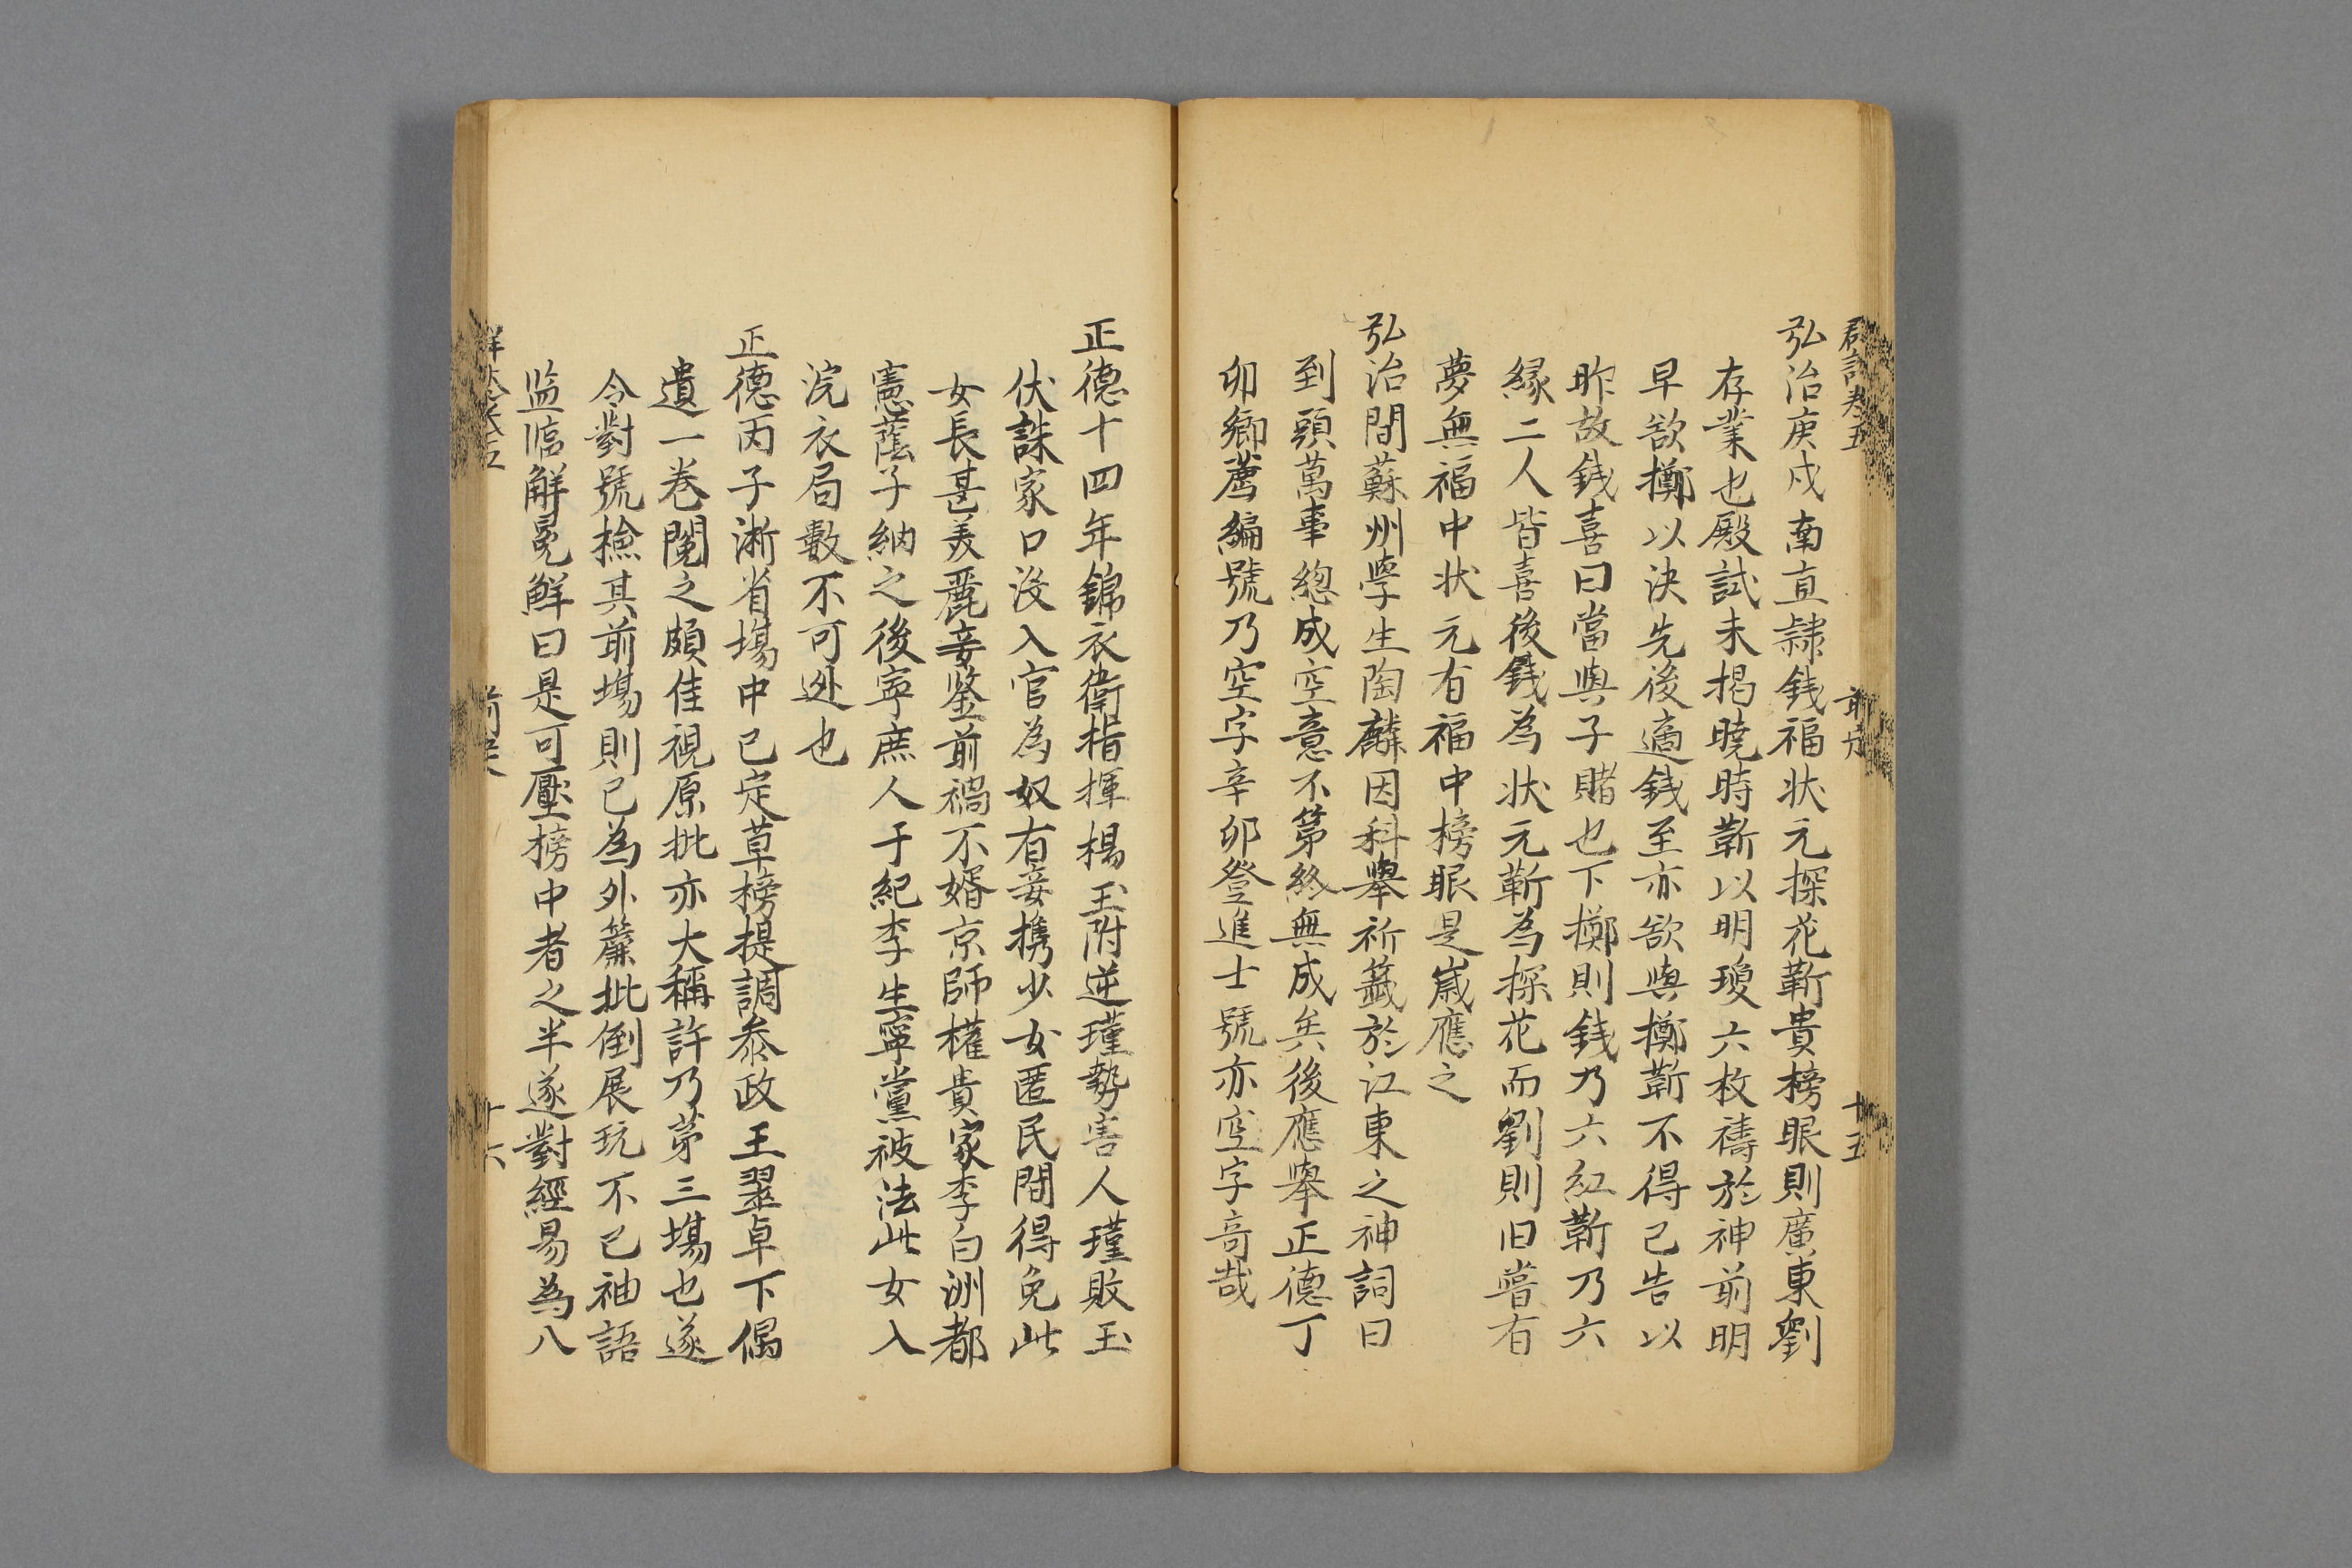 弘治庚戌南直隷錢福状元探花靳貴榜眼則廣東劉
存業也殿試未揭曉時靳以明瓊六枚禱於神前明
早欲擲以決先後適錢至亦欲與擲靳不得已告以
昨故錢喜曰當與子賭也下擲則錢乃六紅靳乃六
縁二人皆喜後錢為状元靳為探花而劉則旧嘗有
夢無福中状元有福中榜眼是嵗應之
弘治間蘇州學生陶麟因科舉祈籤於江東之神詞曰
到頭萬事緫成空意不第終無成矣後應舉正德丁
卯鄉薦編號乃空字辛卯登進士號亦空字竒哉
十五
正德十四年錦衣衛指揮楊玉附逆瑾勢害人瑾敗玉
伏誅家口沒入官為奴有妾携少女匿民間得免此
女長甚美麗妾鑒前禍不婿京師權貴家李白洲都
憲蔭子納之後寧庶人于紀李生寧黨被法此女入
浣衣局數不可迯也
正德丙子淅省塲中已定草榜提調叅政王翌卓下偶
遺一巻閱之頗佳視原批亦大稱許乃苐三塲也遂
令對號撿其前塲則已為外簾批倒展玩不已袖語
监臨觧冕觧曰是可壓榜中者之半遂對經易為八